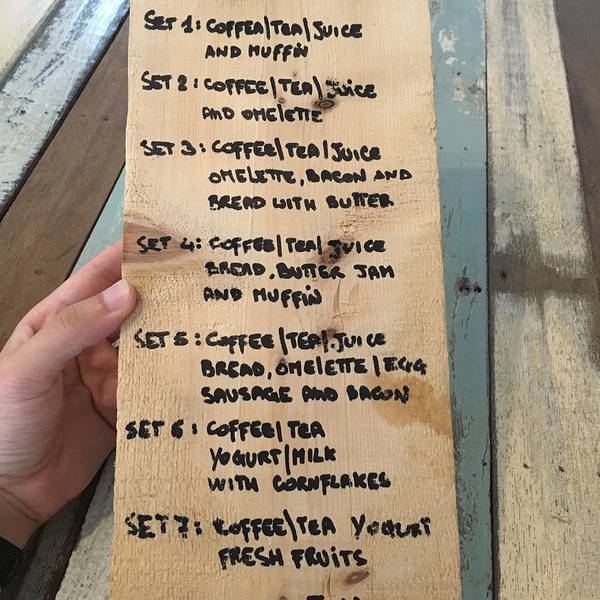 SET 1: COFFEA/TEA/JUICE
AND MUFFIN
SET 2: COFFEE/TEA/JUICE
AND OMELETTE
SET 3: COFFEE/TEA/JUICE
OMELETTE, BACON AND
BREAD WITH BUTTER
SET 4: COFFEE/TEA/JUICE
BREAD, BUTTER JAM
AND MUFFIN
SET 5: COFFEE/TEA/JUICE
BREAD, OMELETTE/EGG
SAUSAGE AND BACON
SET 6: COFFEE/TEA
YOGURT/MILK
WITH CORNFLAKES
SET 7: COFFEE/TEA YOGURT
FRESH FRUITS